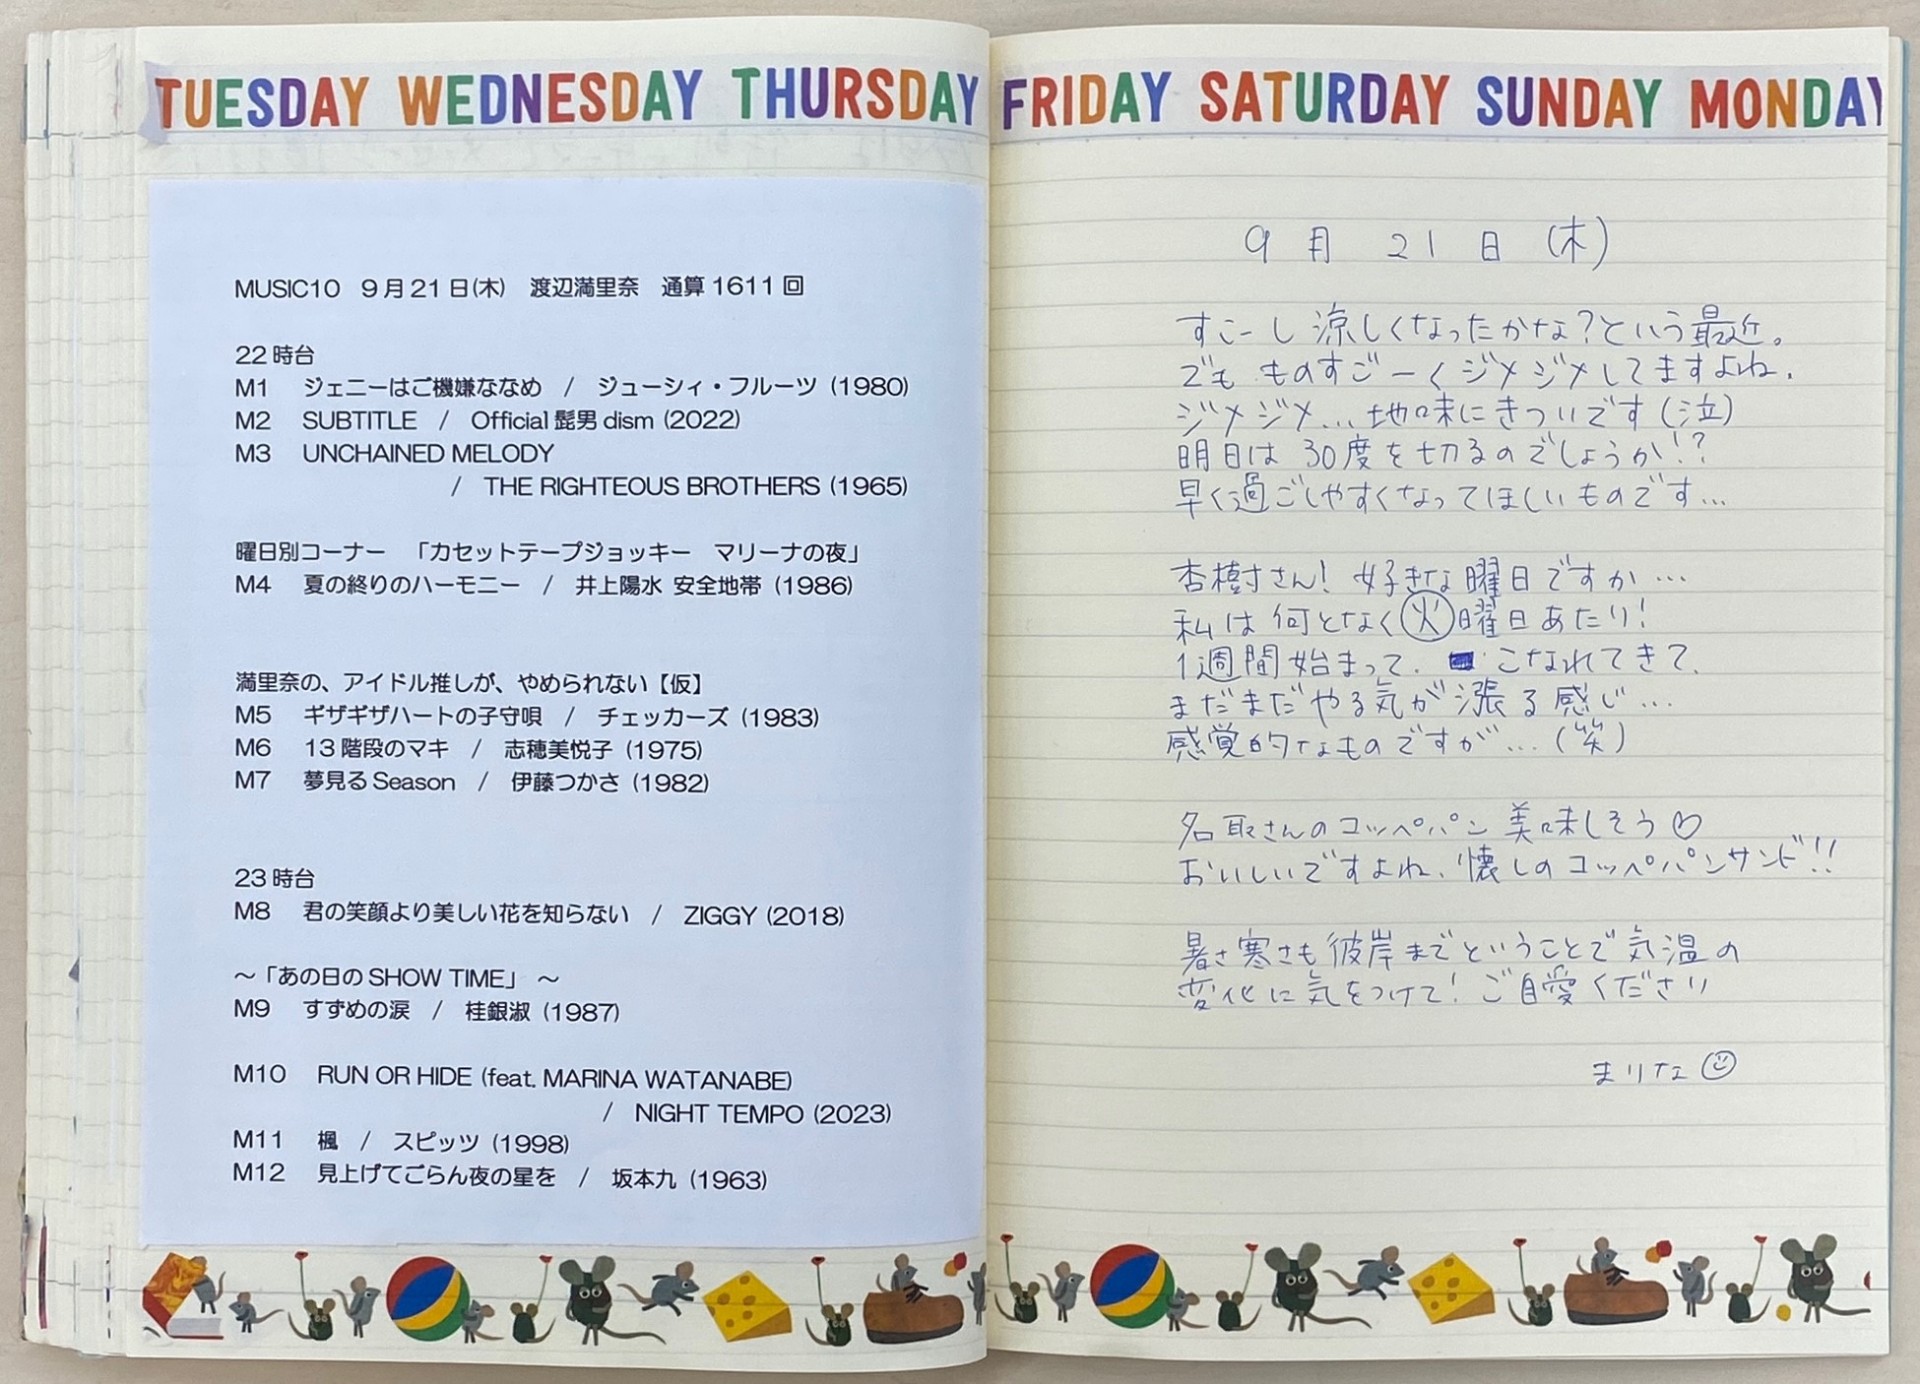 TUESDAY WEDNESDAY THURSDAY
MUSIC10 9月21日(木) 渡辺満里奈 通算1611回
22時台
M1 ジェニーはご機嫌ななめ / ジューシィ・フルーツ (1980)
M2 SUBTITLE / Official髭男dism (2022)
M3 UNCHAINED MELODY
/ THE RIGHTEOUS BROTHERS (1965)
曜日別コーナー 「カセットテープジョッキー マリーナの夜」
M4 夏の終りのハーモニー / 井上陽水 安全地帯 (1986)
満里奈の、アイドル推しが、やめられない【仮】
M5 ギザギザハートの子守唄 / チェッカーズ (1983)
M6 13階段のマキ / 志穂美悦子 (1975)
M7 夢見るSeason / 伊藤つかさ (1982)
23時台
M8 君の笑顔より美しい花を知らない / ZIGGY (2018)
～「あの日のSHOW TIME」～
M9 すずめの涙 / 桂銀淑 (1987)
M10 RUN OR HIDE (feat. MARINA WATANABE)
/ NIGHT TEMPO (2023)
M11 楓 / スピッツ (1998)
M12 見上げてごらん夜の星を / 坂本九 (1963)
FRIDAY SATURDAY SUNDAY MONDAY
9月21日(木)
すこーし涼しくなったかな?という最近。
でも ものすごーくジメジメしてますよね、
ジメジメ...地味にきついです(泣)
明日は30度を切るのでしょうか!?
早く過ごしやすくなってほしいものです...
杏樹さん! 好きな曜日ですか...
私は何となく火曜日あたり!
1週間始まって、こなれてきて、
まだまだやる気が漲る感じ...
感覚的なものですが...(笑)
名取さんのコッペパン美味しそう♡
おいしいですよね、懐しのコッペパンサンド!!
暑さ寒さも彼岸までということで気温の
変化に気をつけて! ご自愛ください
まりな